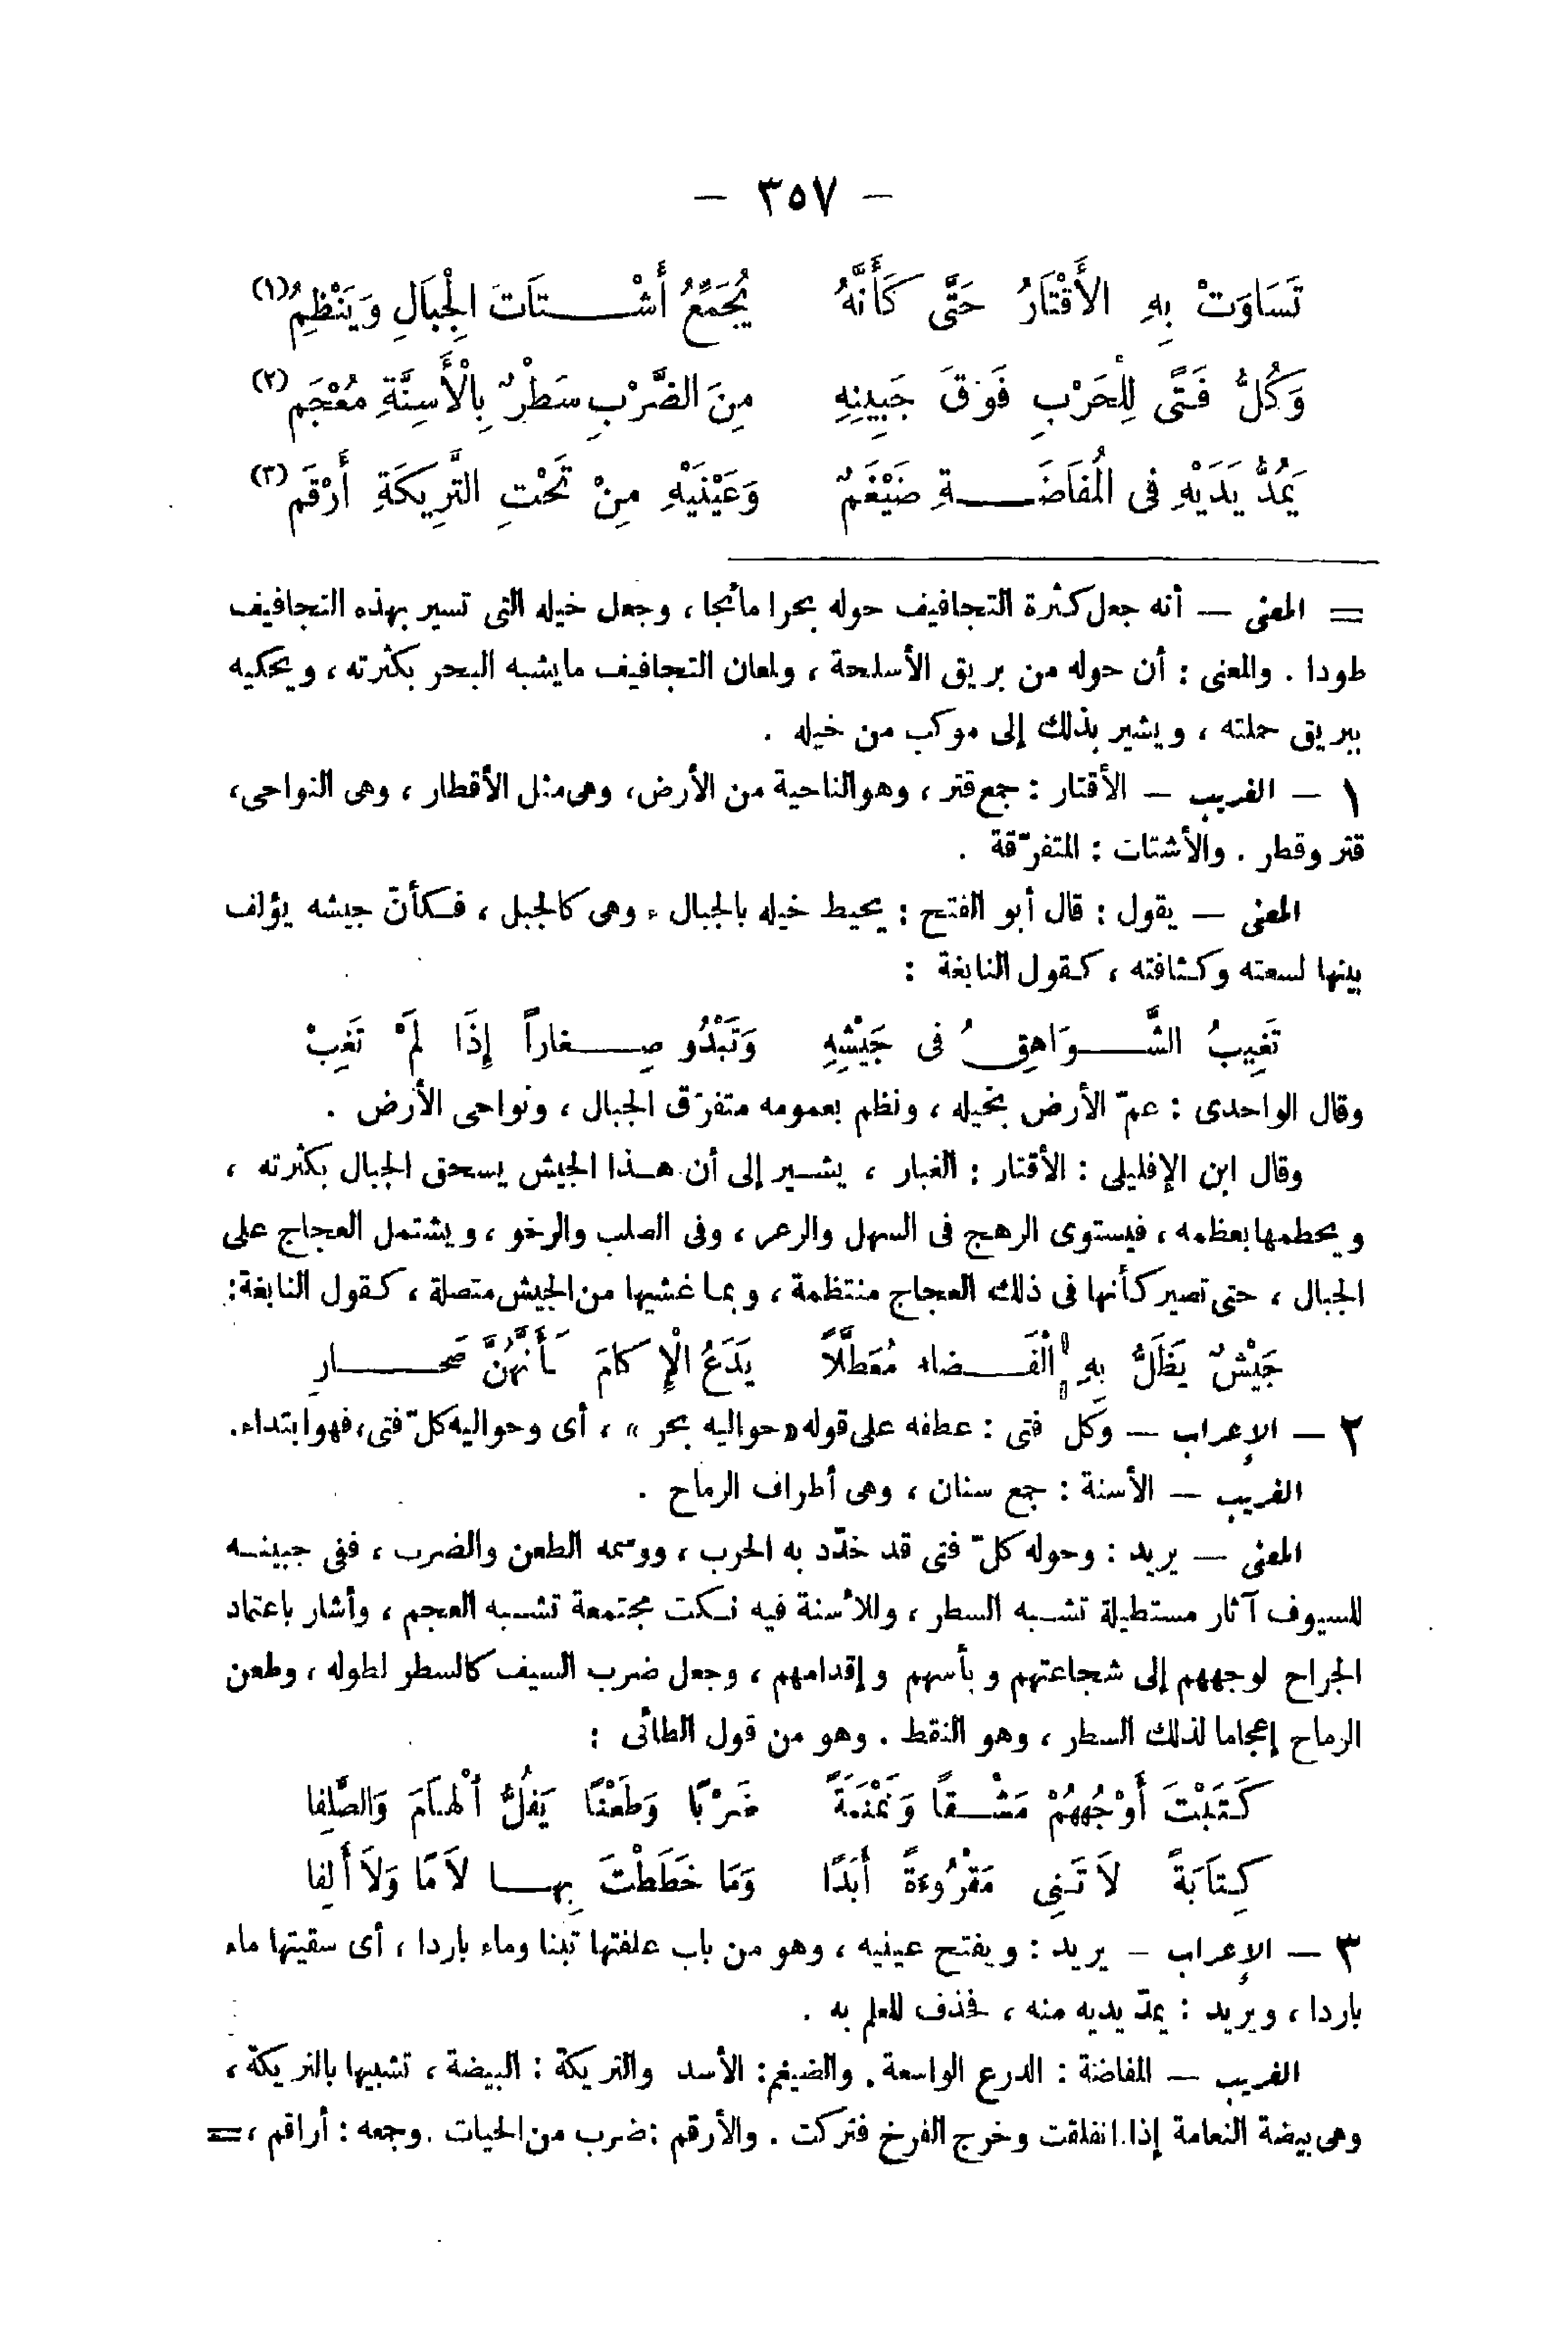 — ٣٥٧ —
تَسَاوَتْ بِهِ الأَقْتَارُ حَتَّى كَأَنَّهُ يُجَمِّعُ أَشْتَاتَ الْجِبَالِ وَيَنْظِمُ (١)
وَكُلُّ فَتًى لِلْحَرْبِ فَوْقَ جَبِينِهِ مِنَ الضَّرْبِ سَطْرٌ بِالْأَسِنَّةِ مُعْجَم (٢)
يَمُدُّ يَدَيْهِ فى الْمُفَاضَةِ ضَيْغَمٌ وَعَيْنَيْهِ مِنْ تَحْتِ التَّرِيكَةِ أَرْقَم (٣)
= المعنى — أنه جعل كثرة التجافيف حوله بحرا مائجا ، وجعل خيله التى تسير بهذه التجافيف
طودا . والمعنى : أن حوله من بريق الأسلحة ، ولمعان التجافيف مايشبه البحر بكثرته ، ويحكيه
ببريق حملته ، ويشير بذلك إلى موكب من خيله .
١ — الغريب — الأقتار : جمع قتر ، وهو الناحية من الأرض ، وهى مثل الأقطار ، وهى النواحى ،
قتر وقطر . والأشتات : المتفرّقة .
المعنى — يقول : قال أبو الفتح : يحيط خيله بالجبال ، وهى كالجبل ، فكأنّ جيشه يؤلف
بينها لسعته وكثافته ، كقول النابغة :
تَغِيبُ الشَّوَاهِقُ فى جَيْشِهِ وَتَبْدُو صِغاراً إِذَا لَمْ تَغِبْ
وقال الواحدى : عمّ الأرض بخيله ، ونظم بعمومه متفرّق الجبال ، ونواحى الأرض .
وقال ابن الإفليلى : الأقتار : الغبار ، يشير إلى أن هذا الجيش يسحق الجبال بكثرته ،
ويحطمها بعظمه ، فيستوى الرهج فى السهل والرعر ، وفى الصلب والرخو ، ويشتمل العجاج على
الجبال ، حتى تصير كأنها فى ذلك العجاج منتظمة ، وبما غشيها من الجيش متصلة ، كقول النابغة :
جَيْشٌ يَظَلُّ بِهِ الْفَضاء مُعَطَّلاً يَدَعُ الْإِكامَ كَأَنَّهُنَّ صَحارِ
٢ — الإعراب — وكل فتى : عطفه على قوله « حواليه بحر » ، أى وحواليه كلّ فتى ، فهو ابتداء .
الغريب — الأسنة : جمع سنان ، وهى أطراف الرماح .
المعنى — يريد : وحوله كلّ فتى قد خدّد به الحرب ، ووسمه الطعن والضرب ، ففى جبينه
للسيوف آثار مستطيلة تشبه السطر ، وللأسنة فيه نكت مجتمعة تشبه العجم ، وأشار باعتماد
الجراح لوجههم إلى شجاعتهم وبأسهم وإقدامهم ، وجعل ضرب السيف كالسطر لطوله ، وطعن
الرماح إعجاما لذلك السطر ، وهو النقط . وهو من قول الطائى :
كَتَبْتَ أَوْجُهَهُمْ مَشْقاً وَنَمْنَمَةً ضَرْبًا وَطَعْنًا يَفُلُّ الْهَامَ وَالصُّلُفا
كِتَابَةً لاَ تَنِى مَقْرُوءَةً أَبَدًا وَمَا خَطَطْتَ بِها لاَمًا وَلاَ أَلِفا
٣ — الإعراب — يريد : ويفتح عينيه ، وهو من باب علفتها تبنا وماء باردا ، أى سقيتها ماء
باردا ، ويريد : يمدّ يديه منه ، فحذف للعلم به .
الغريب — المفاضة : الدرع الواسعة . والضيغم : الأسد والتريكة : البيضة ، تشبيها بالتريكة ،
وهى بيضة النعامة إذا انفلقت وخرج الفرخ فتركت . والأرقم : ضرب من الحيات . وجمعه : أراقم ، =